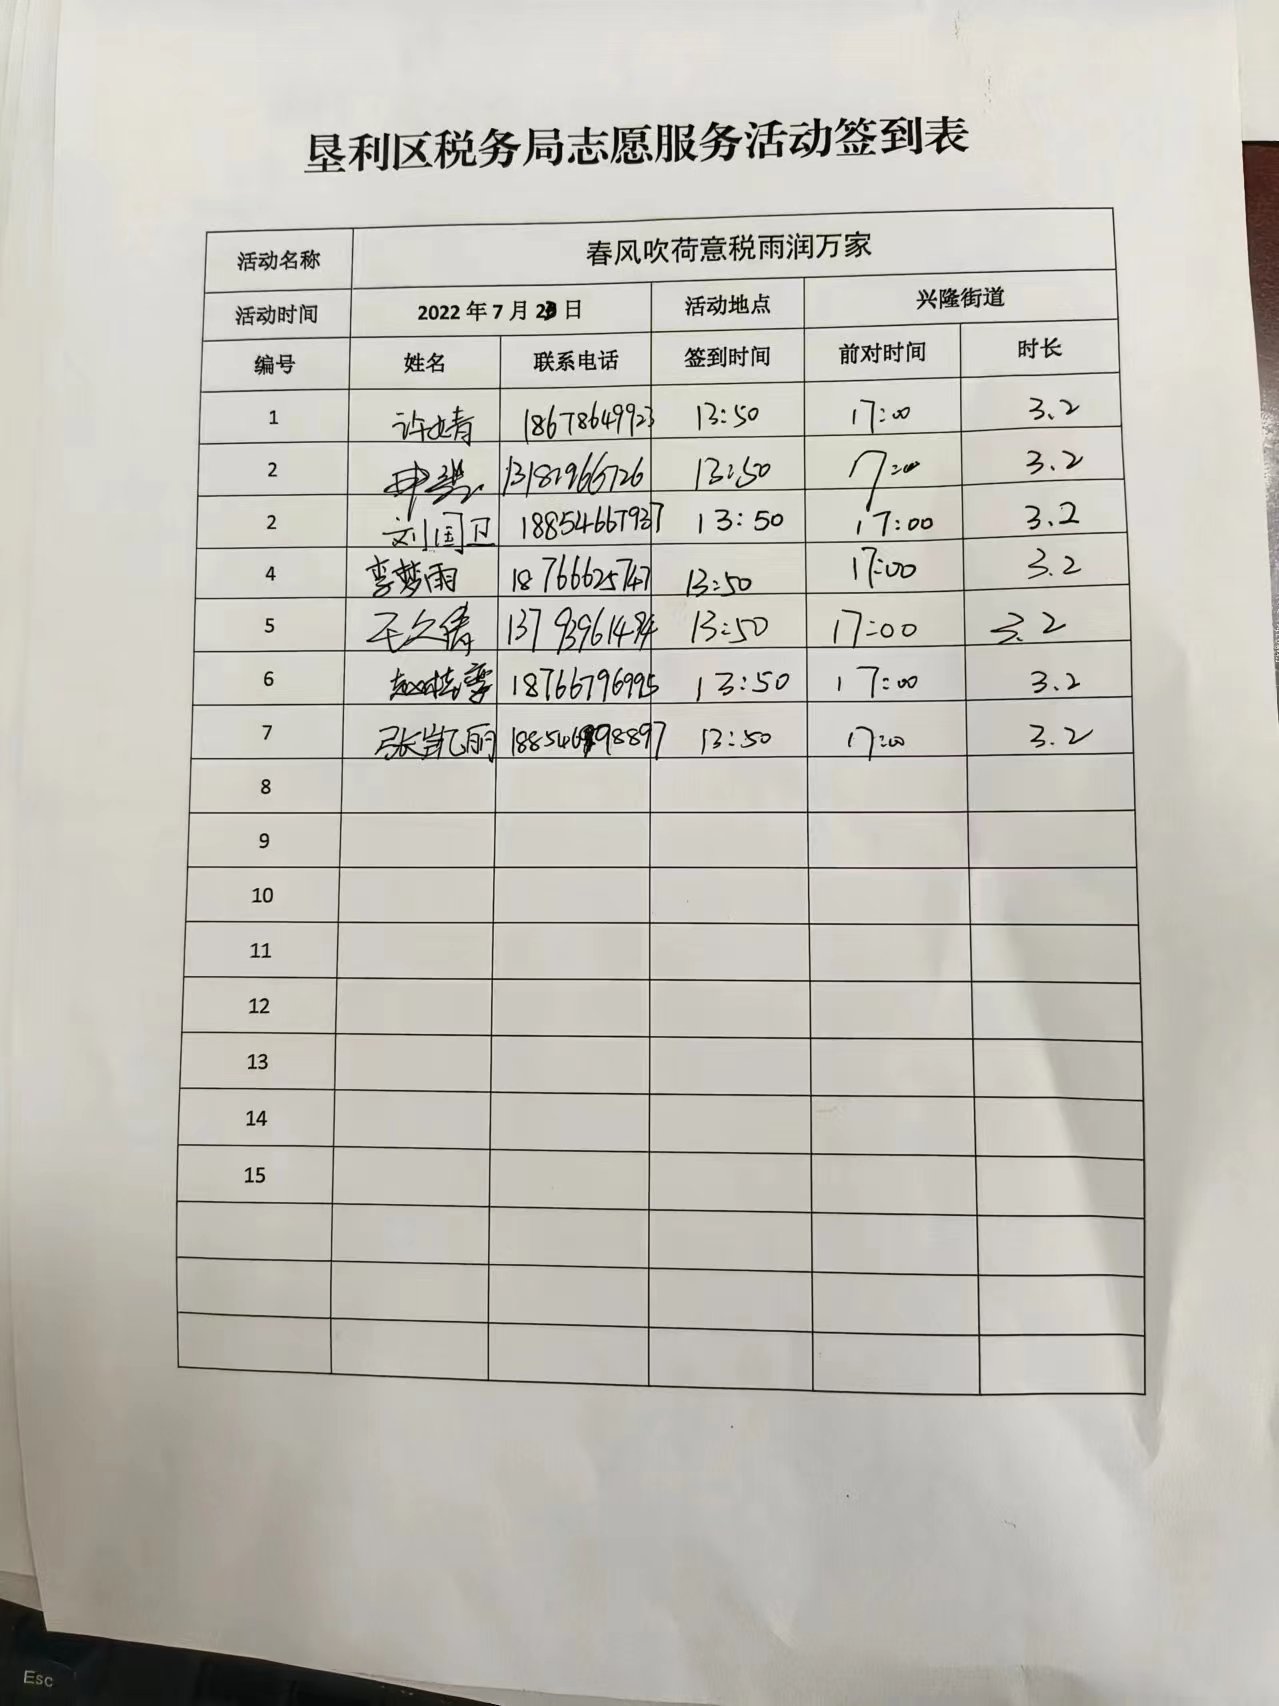 垦利区税务局志愿服务活动签到表
活动名称 春风吹荷意税雨润万家
活动时间 2022 年 7 月 23 日 活动地点 兴隆街道
编号 姓名 联系电话 签到时间 前对时间 时长
1 许婧 18678649923 13:50 17:00 3.2
2 13181966726 13:50 17:00 3.2
2 刘国卫 18854667937 13:50 17:00 3.2
4 李梦雨 18766625747 13:50 17:00 3.2
5 13:50 17:00 3.2
6 18766796995 13:50 17:00 3.2
7 张凯丽 13:50 17:00 3.2
8
9
10
11
12
13
14
15
Esc